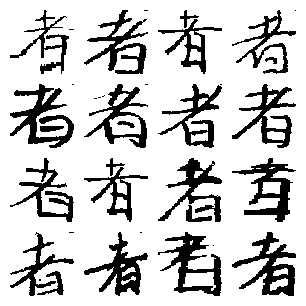 者者者者
者者者者
者者者者
者者者者